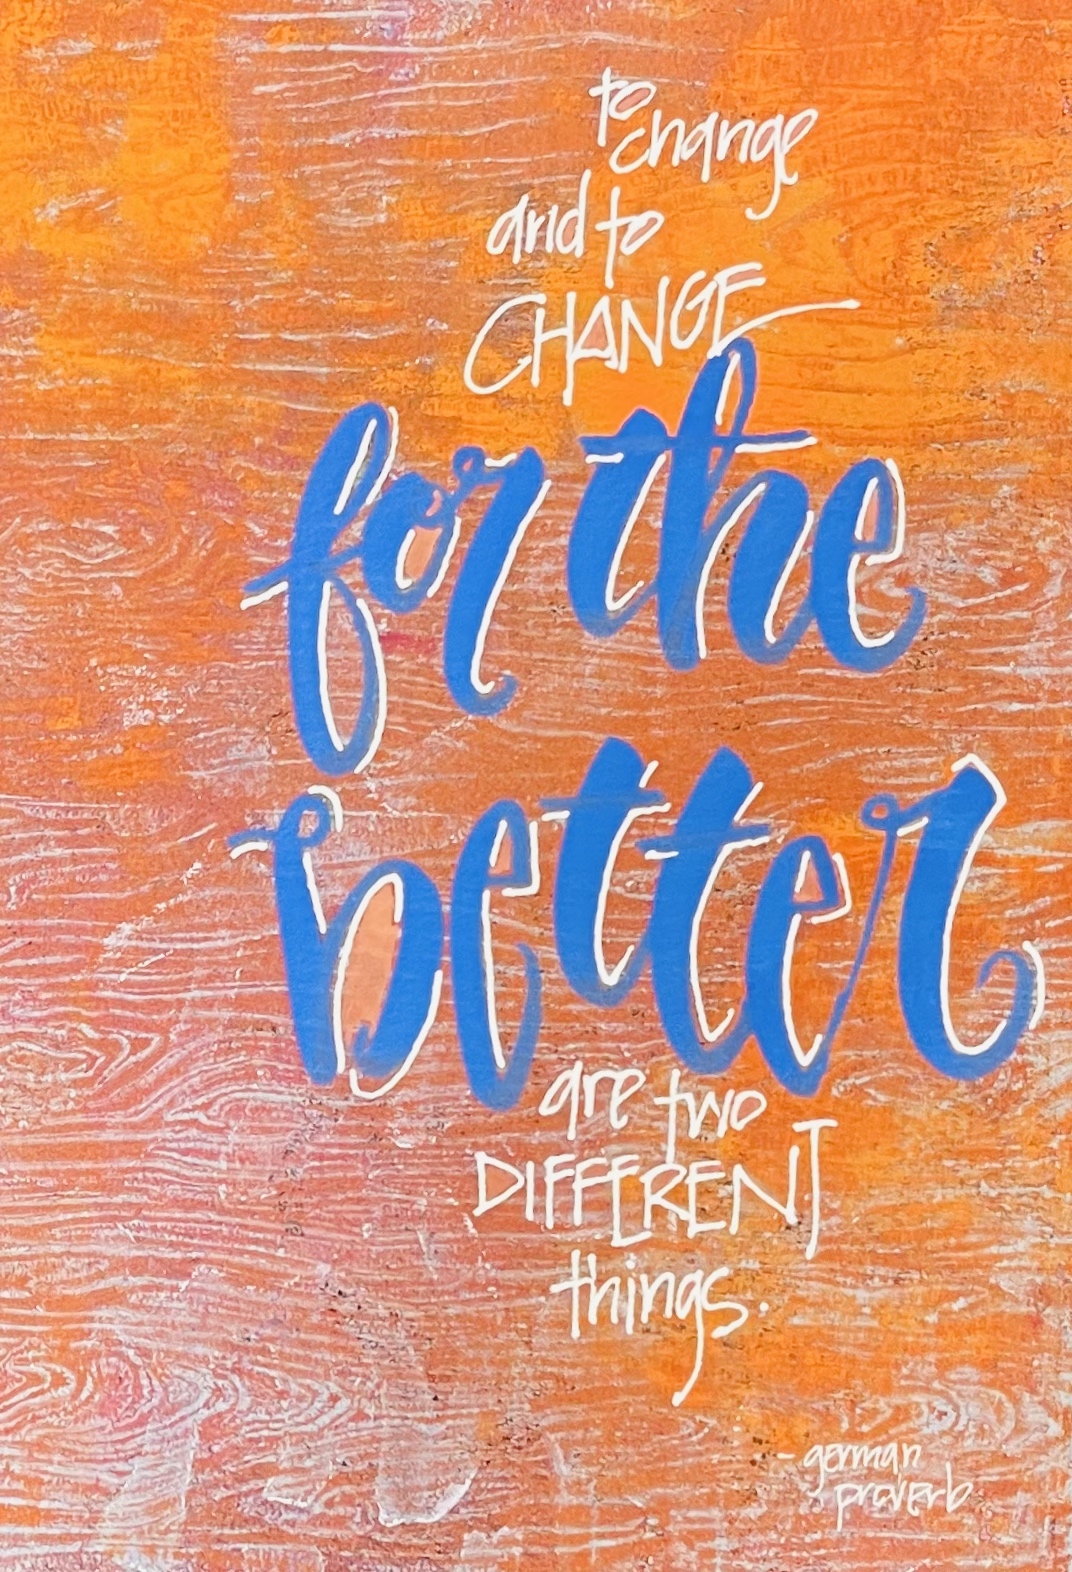 to
change
and to
CHANGE
for the
better
are two
DIFFERENT
things.
- german
proverb